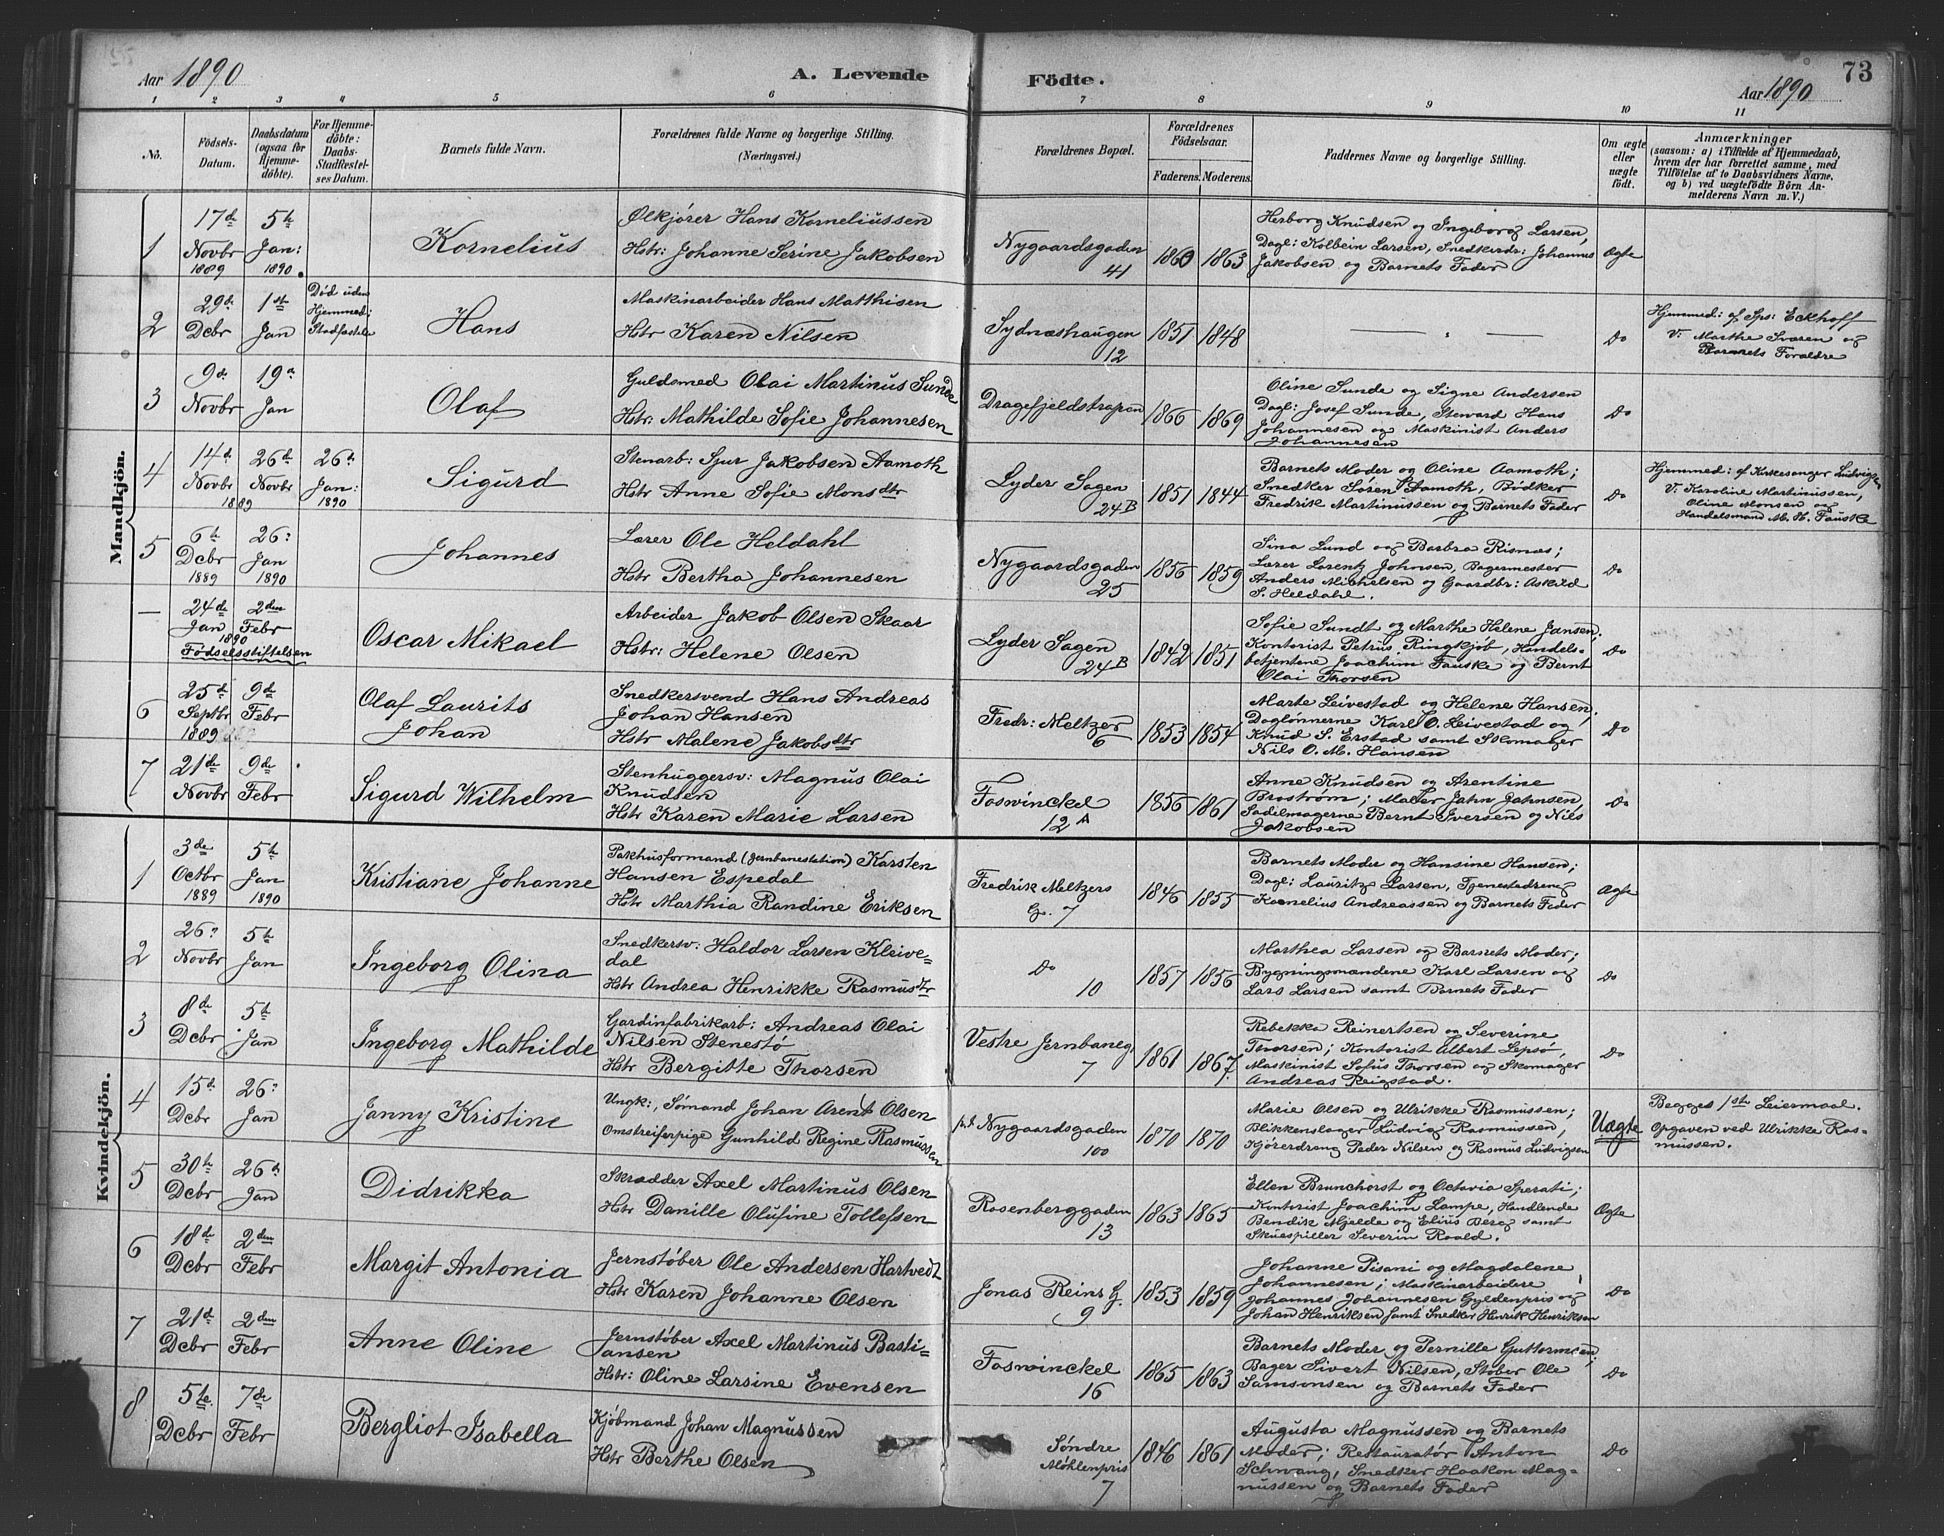 Aar 1890
A. Levende Födte.
Aar 1890
73
1 2 3 4 5 6 7 8 9 10 11
No.
Födsels-Datum.
Daabsdatum (ogsaa for Hjemme-döbte).
For Hjemme-döbte: Daabs-Stadfæstel-ses Datum.
Barnets fulde Navn.
Forældrenes fulde Navne og borgerlige Stilling.
(Næringsvei.)
Forældrenes Bopæl.
Forældrenes Födselsaar.
Faderens. Moderens.
Faddernes Navne og borgerlige Stilling.
Om ægte eller uægte födt.
Anmærkninger
(saasom: a) i Tilfælde af Hjemmedaab, hvem der har forrettet samme, med Tilföielse af to Daabsvidners Navne, og b) ved uægtefödte Börn An-melderens Navn m. V.)
Mandkjön.
1 17de Novbr 1889 5te Jan: 1890.
Kornelius
Ølkjører Hans Korneliussen
Hstr: Johanne Serine Jakobsen
Nygaardsgaden 41
1860 1863
Herborg Knudsen og Ingeborg Larsen,
Dagl: Kolbein Larsen, Snedkerdr: Johannes
Jakobsen og Barnets Fader
Ægte
2 29de Dcbr 1ste Jan
Død uden Hjemmed: Stadfæstelse
Hans
Maskinarbeider Hans Matthisen
Hstr Karen Nilsen
Sydnæshaugen 12
1851 1848
— " —
Do
Hjemmed: af Sps: Eckhoff
V: Marthe Sværen og
Barnets Forældre
3 9de Novbr 19de Jan
Olaf
Guldsmed Olai Martinus Sunde
Hstr: Mathilde Sofie Johannesen
Dragefjeldstrappen
1866 1869
Oline Sunde og Signe Andersen
Dagl: Josef Sunde, Steward Hans
Johannesen og Maskinist Anders
Johannesen
Do
4 14de Novbr 1889 26de Novbr 26de Jan: 1890
Sigurd
Stenarb: Sjur Jakobsen Aamoth
Hstr Anne Sofie Monsdtr
Lyder Sagen 24B
1851 1844
Barnets Moder og Oline Aamoth;
Snedker Søren Aamoth, Bødker
Fredrik Martinussen og Barnets Fader
Do
Hjemmed: af Kirkesanger Ludvigsen
V: Karoline Martinussen,
Oline Monsen og
Handelsmand M. H. Fauske
5 6te Dcbr 1889 26: Jan 1890
Johannes
Lærer Ole Heldahl
Hstr Bertha Johannesen
Nygaardsgaden 25
1856 1859
Sina Lund og Barbra Risnæs;
Lærer Lorentz Johnsen, Bagermester
Anders Michelsen og Gaardbr: Askild
S. Heldahl.
Do
— 24de Jan 1890 2den Febr
Fødselsstiftelsen
Oscar Mikael
Arbeider Jakob Olsen Skaar
Hstr: Helene Olsen
Lyder Sagen 24B
1842 1851
Sofie Sundt og Marthe Helene Jansen.
Kontorist Petrus Ringkjøb, Handels-
betjentene Joachim Fauske og Bernt
Olai Thorsen
Do
6 25de Septbr 1889 9de Febr
Olaf Laurits
Johan
Snedkersvend Hans Andreas
Johan Hansen
Hstr Malene Jakobsdtr
Fredr: Meltzer 6
1853 1854
Marte Leivestad og Helene Hansen;
Daglønnerne Karl O. Leivestad og
Knud S. Erstad samt Skomager
Nils O. M. Hansen
Do
7 21de Novbr 9de Febr
Sigurd Wilhelm
Stenhuggersv: Magnus Olai
Knudsen
Hstr Karen Marie Larsen
Foswinckel 12 A
1856 1861
Anne Knudsen og Arentine
Brostrøm; Maler Jahn Johnsen,
Sadelmagerne Bernt Iversen og Nils
Jakobsen
Do
Kvindekjön.
1 3de Octbr 1889 5te Jan 1890
Kristiane Johanne
Pakhusformand (Jernbanestation) Karsten
Hansen Espedal
Hstr Marthia Randine Eriksen
Fredrik Meltzers G. 7
1846 1855
Barnets Moder og Hansine Hansen;
Dagl: Lauritz Larsen, Tjenestedreng
Kornelius Andreassen og Barnets Fader
Ægte
2 26: Novbr 5te Jan
Ingeborg Olina
Snedkersv: Haldor Larsen Kleive-
dal
Hstr Andrea Henrikke Rasmusdtr
Do 10
1857 1856
Marthea Larsen og Barnets Moder;
Bygningsmændene Karl Larsen og
Lars Larsen samt Barnets Fader
Do
3 8de Dcbr 5te Jan
Ingeborg Mathilde
Gardinfabrikarb: Andreas Olai
Nilsen Stenestø
Hstr Bergitte Thorsen
Vestre Jernbaneg. 7
1861 1867
Rebekka Reinertsen og Severine
Thorsen; Kontorist Albert Lepsø,
Maskinist Sofus Thorsen og Skomager
Andreas Reigstad.
Do
4 15de Dcbr 26: Jan
Janny Kristine
Ungk:, Sømand Johan Arent Olsen
Omstreiferpige Gunhild Regine Rasmussen
p.t Nygaardsgaden 100
1870 1870
Marie Olsen og Ulrikke Rasmussen;
Blikkenslager Ludvig Rasmussen,
Kjørerdreng Peder Nilsen og Rasmus Ludvigsen
Uægte
Begges 1ste Leiermaal.
Opgaven ved Ulrikke Ras-
mussen.
5 30te Dcbr 26de Jan
Didrikka
Skrædder Axel Martinus Olsen
Hstr Danille Olufine Tollefsen
Rosenberggaden 13
1863 1865
Ellen Brunchorst og Octavia Sperati;
Kontorist Joachim Lampe, Handlende
Bendik Mjelde og Elius Berg samt
Skuespiller Severin Roald.
Ægte
6 18de Dcbr 2den Febr
Margit Antonia
Jernstøber Ole Andersen Hartvedt
Hstr Karen Johanne Olsen
Jonas Reins G. 9
1853 1859
Johanne Pisani og Magdalene
Johannesen; Maskinarbeidere
Johannes Johannesen Gyldenpris og
Johan Henriksen samt Snedker Henrik Henriksen
Do
7 21de Dcbr 2den Febr
Anne Oline
Jernstøber Axel Martinus Basti-
ansen
Hstr: Oline Larsine Evensen
Foswinckel 16
1865 1863
Barnets Moder og Pernille Guttormsen;
Bager Sivert Nilsen, Støber Ole
Samsonsen og Barnets Fader
Do
8 5te Dcbr 7de Febr
Bergliot Isabella
Kjøbmand Johan Magnussen
Hstr Berthe Olsen
Søndre Møhlenpris 7
1846 1861
Augusta Magnussen og Barnets
Moder; Restauratør Anton
Schwang, Snedker Haakon Mag-
nussen og Barnets Fader
Do